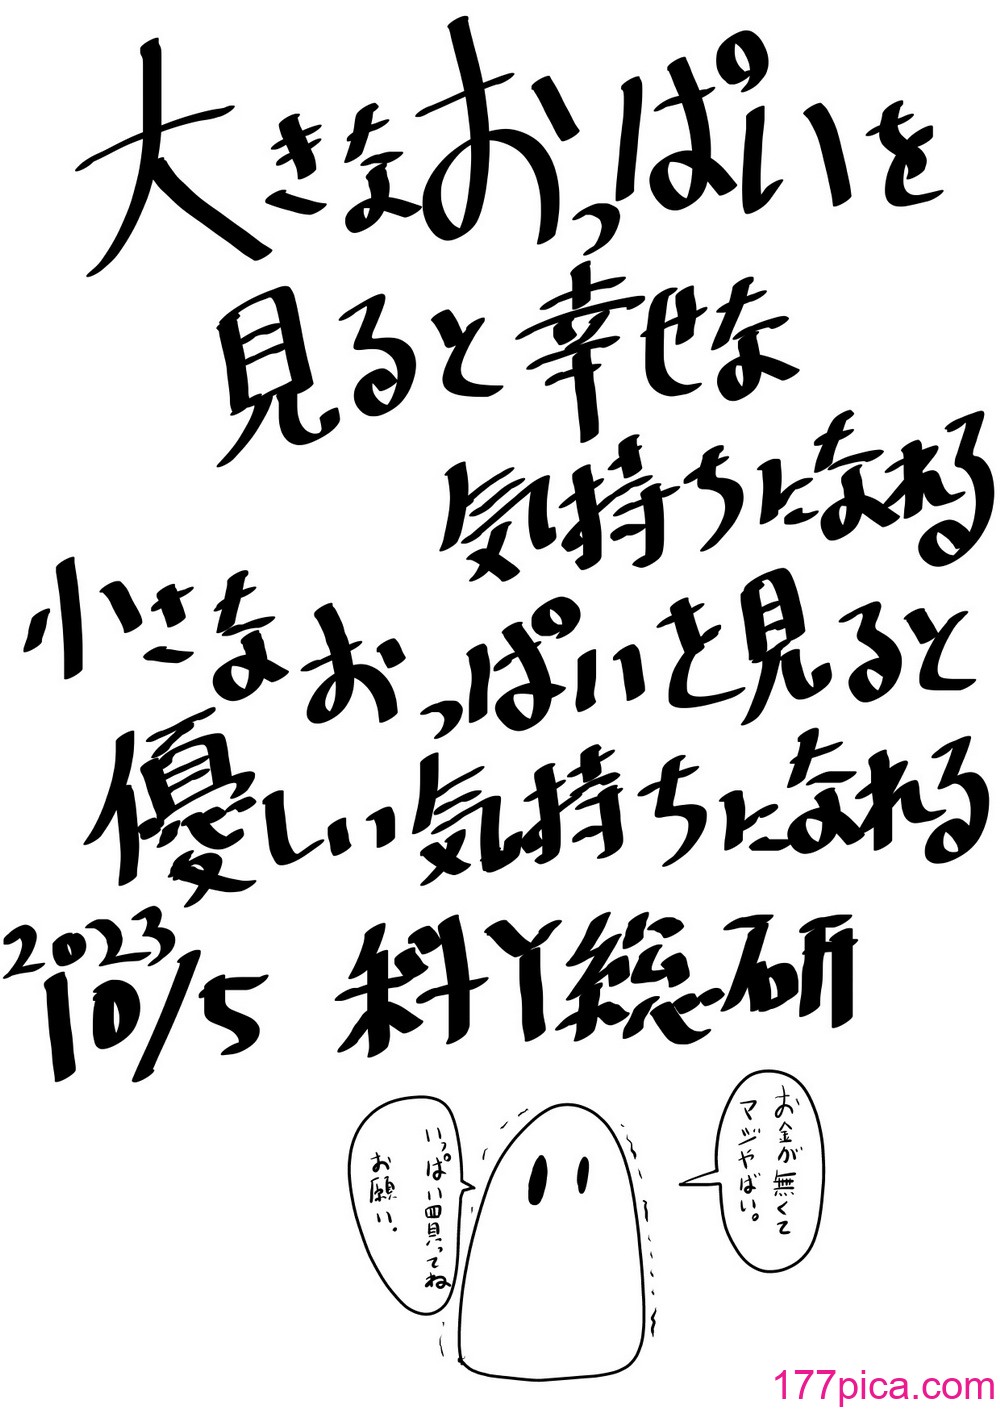 大きなおっぱいを
見ると幸せな
気持ちになれる
小さなおっぱいを見ると
優しい気持ちになれる
2023
10/5 科丫総研
お金が無くて
マジやばい。
いっぱい買ってね
お願い.
177pica.com